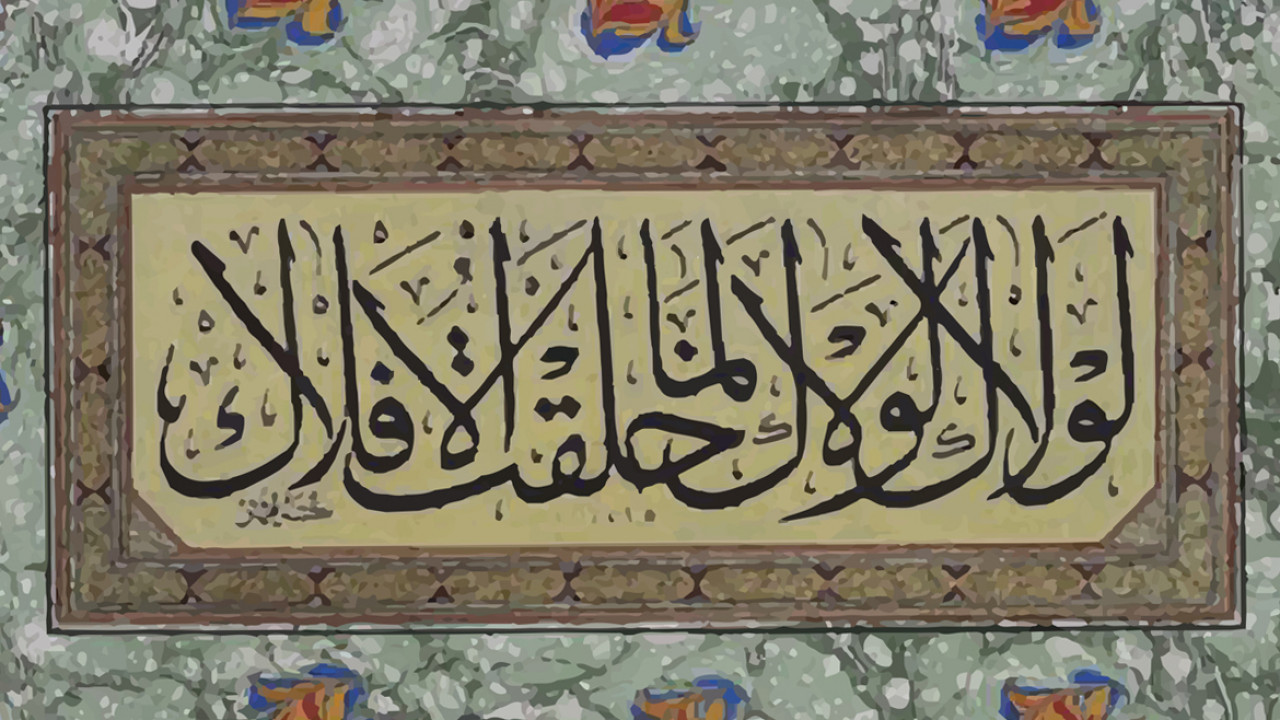 لولاك لولاك لما خلقت الافلاك